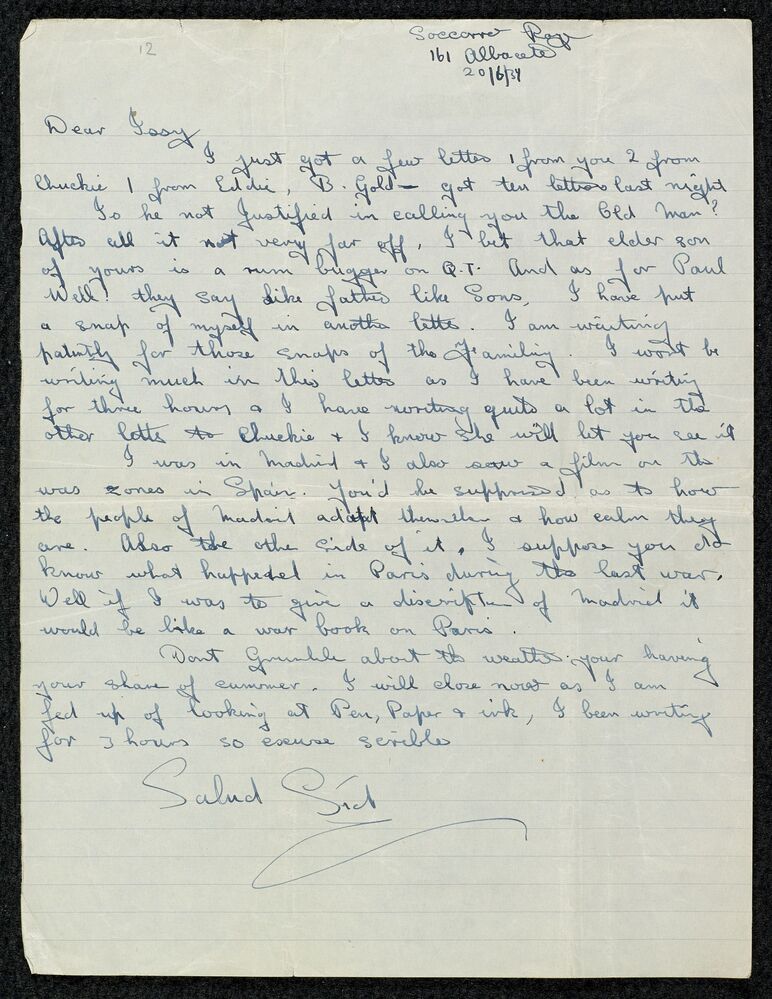 12
Soccorro Rojo
161 Albacete
20/6/37
Dear Issy
I just got a few lettes 1 from you 2 from
Chuckie 1 from Eddie, B. Gold— got ten letters last night
Is he not Justified in calling you the Old Man?
Aftes all it not very far off, I bet that elder son
of yours is a rum bugger on Q.T. And as for Paul
Well! they say Like fathes like Sons, I have put
a snap of myself in anothe lette. I am waiting
patintly for those snaps of the Familiy. I wont be
writing much in this lettes as I have been writing
for three hours & I have writing quite a lot in the
other lette to Chuckie & I know she will let you see it
I was in Madrid & I also saw a film on the
was zones in Spain. You'd be supprised as to how
the people of Madrid adapt themselves & how calm they
are. Also the othe side of it, I suppose you did
know what happened in Paris during the last war.
Well if I was to give a discription of Madrid it
would be like a war book on Paris.
Dont Grumble about the weathe your having
your share of summer. I will close now as I am
fed up of looking at Pen, Paper & ink, I been writing
for 3 hours so excuse scribles
Salud Sid